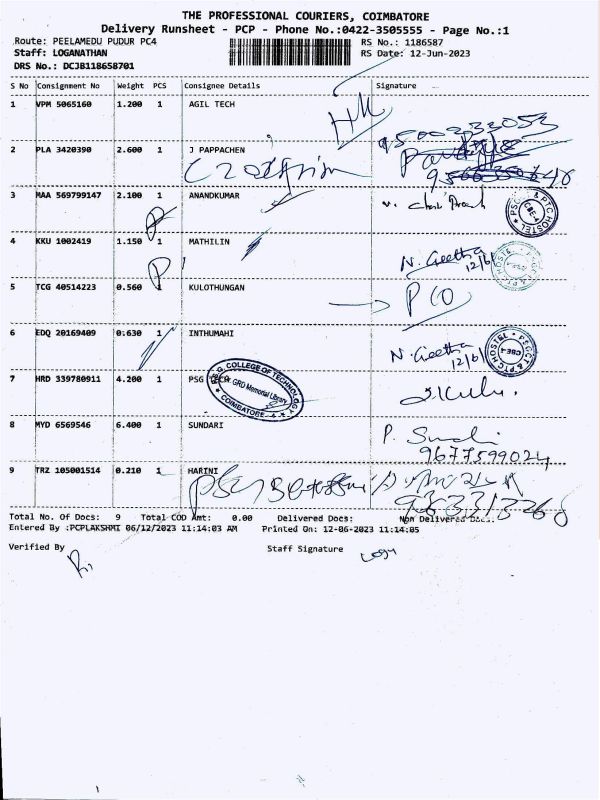 THE PROFESSIONAL COURIERS, COIMBATORE
Delivery Runsheet - PCP - Phone No.:0422-3505555 - Page No.:1
Route: PEELAMEDU PUDUR PC4 RS No.: 1186587
Staff: LOGANATHAN RS Date: 12-Jun-2023
DRS No.: DCJB118658701
S No Consignment No Weight PCS Consignee Details Signature
1 VPM 5065160 1.200 1 AGIL TECH
9500233053
2 PLA 3420390 2.600 1 J PAPPACHEN
3 MAA 569799147 2.100 1 ANANDKUMAR
PSG & PTC HOSTEL CBE-4
4 KKU 1002419 1.150 1 MATHILIN N. Geetha
12/6/
5 TCG 40514223 0.560 1 KULOTHUNGAN
6 EDQ 20169409 0.630 1 INTHUMAHI N. Geetha
12/6/
PSGCT & PTC HOSTEL CBE-4
7 HRD 339780911 4.200 1 PSG
P.S.G. COLLEGE OF TECHNOLOGY
Dr. GRD Memorial Library
COIMBATORE
8 MYD 6569546 6.400 1 SUNDARI P.
9677599024
9 TRZ 105001514 0.210 1 HARINI
Total No. Of Docs: 9 Total COD Amt: 0.00 Delivered Docs: Non Delivered Docs:
Entered By :PCPLAKSHMI 06/12/2023 11:14:03 AM Printed On: 12-06-2023 11:14:05
Verified By Staff Signature